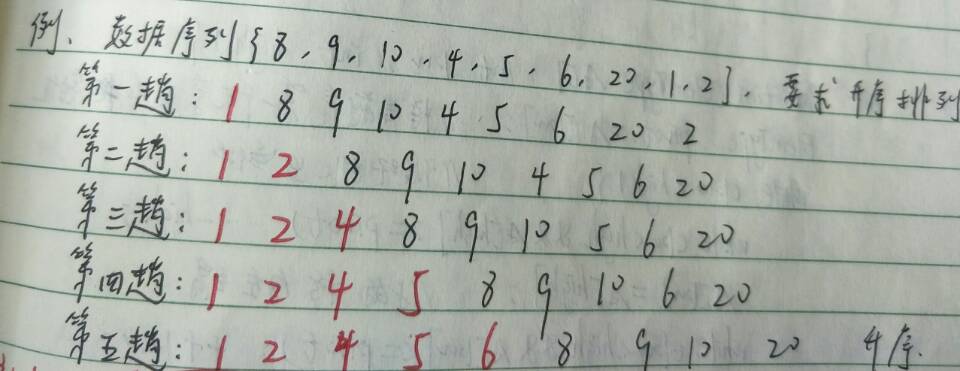 例、数据序列{8, 9, 10, 4, 5, 6, 20, 1, 2}, 要求升序排列
第一趟: 1 8 9 10 4 5 6 20 2
第二趟: 1 2 8 9 10 4 5 6 20
第三趟: 1 2 4 8 9 10 5 6 20
第四趟: 1 2 4 5 8 9 10 6 20
第五趟: 1 2 4 5 6 8 9 10 20 升序.